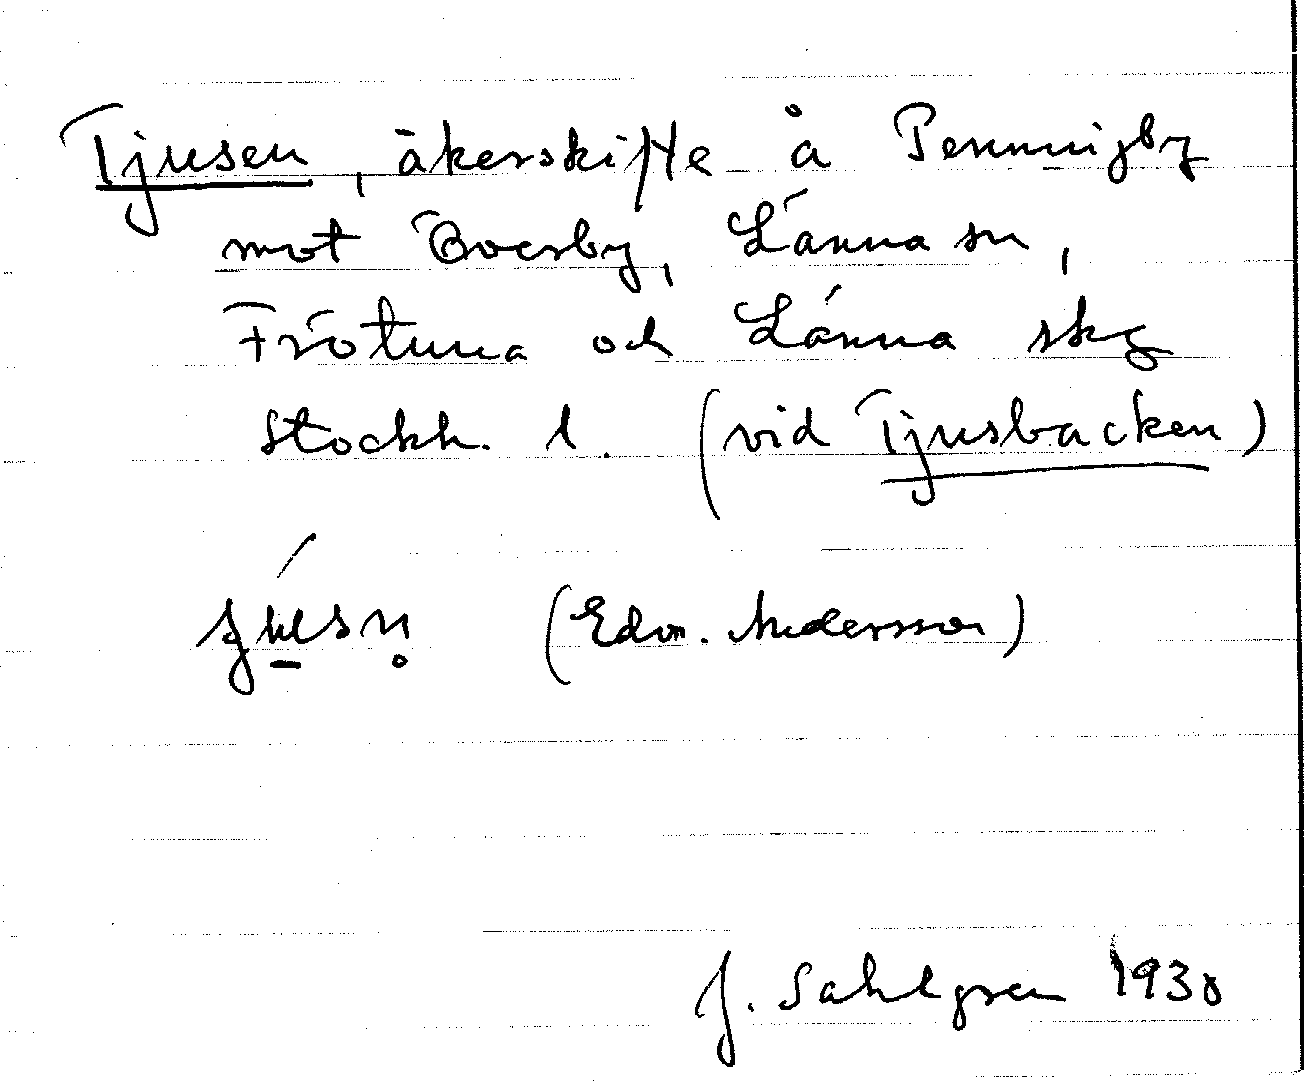 Tjusen, åkerskifte å Penningby
mot Överby, Länna sn,
Frötuna och Länna skg
Stockh. l. (vid Tjusbacken)
(Edv. Andersson)
J. Sahlgren 1930